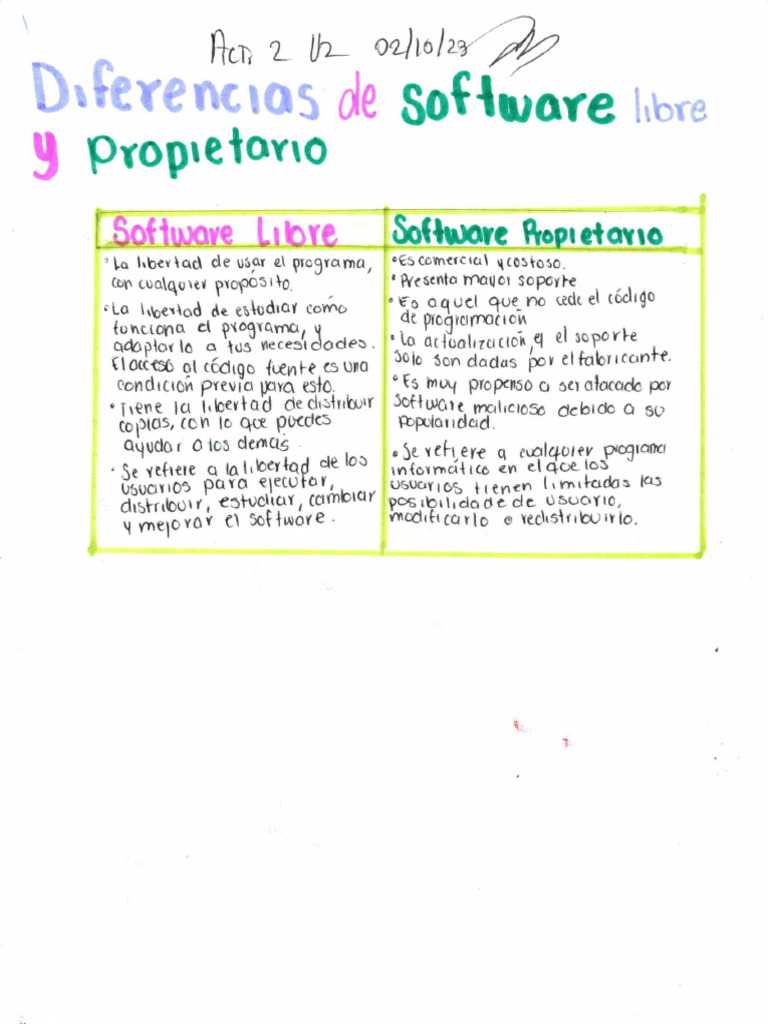 Act. 2 U2 02/10/23
Diferencias de software libre
y propietario
Software Libre
• La libertad de usar el programa,
con cualquier propósito.
• La libertad de estudiar como
funciona el programa, y
adaptarlo a tus necesidades.
El acceso al código fuente es una
condición previa para esto.
• Tiene la libertad de distribuir
copias, con lo que puedes
ayudar a los demás.
• Se refiere a la libertad de los
usuarios para ejecutar,
distribuir, estudiar, cambiar
y mejorar el software.
Software Propietario
• Es comercial y costoso.
• Presenta mayor soporte
• Es aquel que no cede el código
de programación
• La actualización, el soporte
solo son dadas por el fabricante.
• Es muy propenso a ser atacado por
software malicioso debido a su
popularidad.
• Se refiere a cualquier programa
informático en el que los
usuarios tienen limitadas las
posibilidade de usuario,
modificarlo o redistribuirlo.